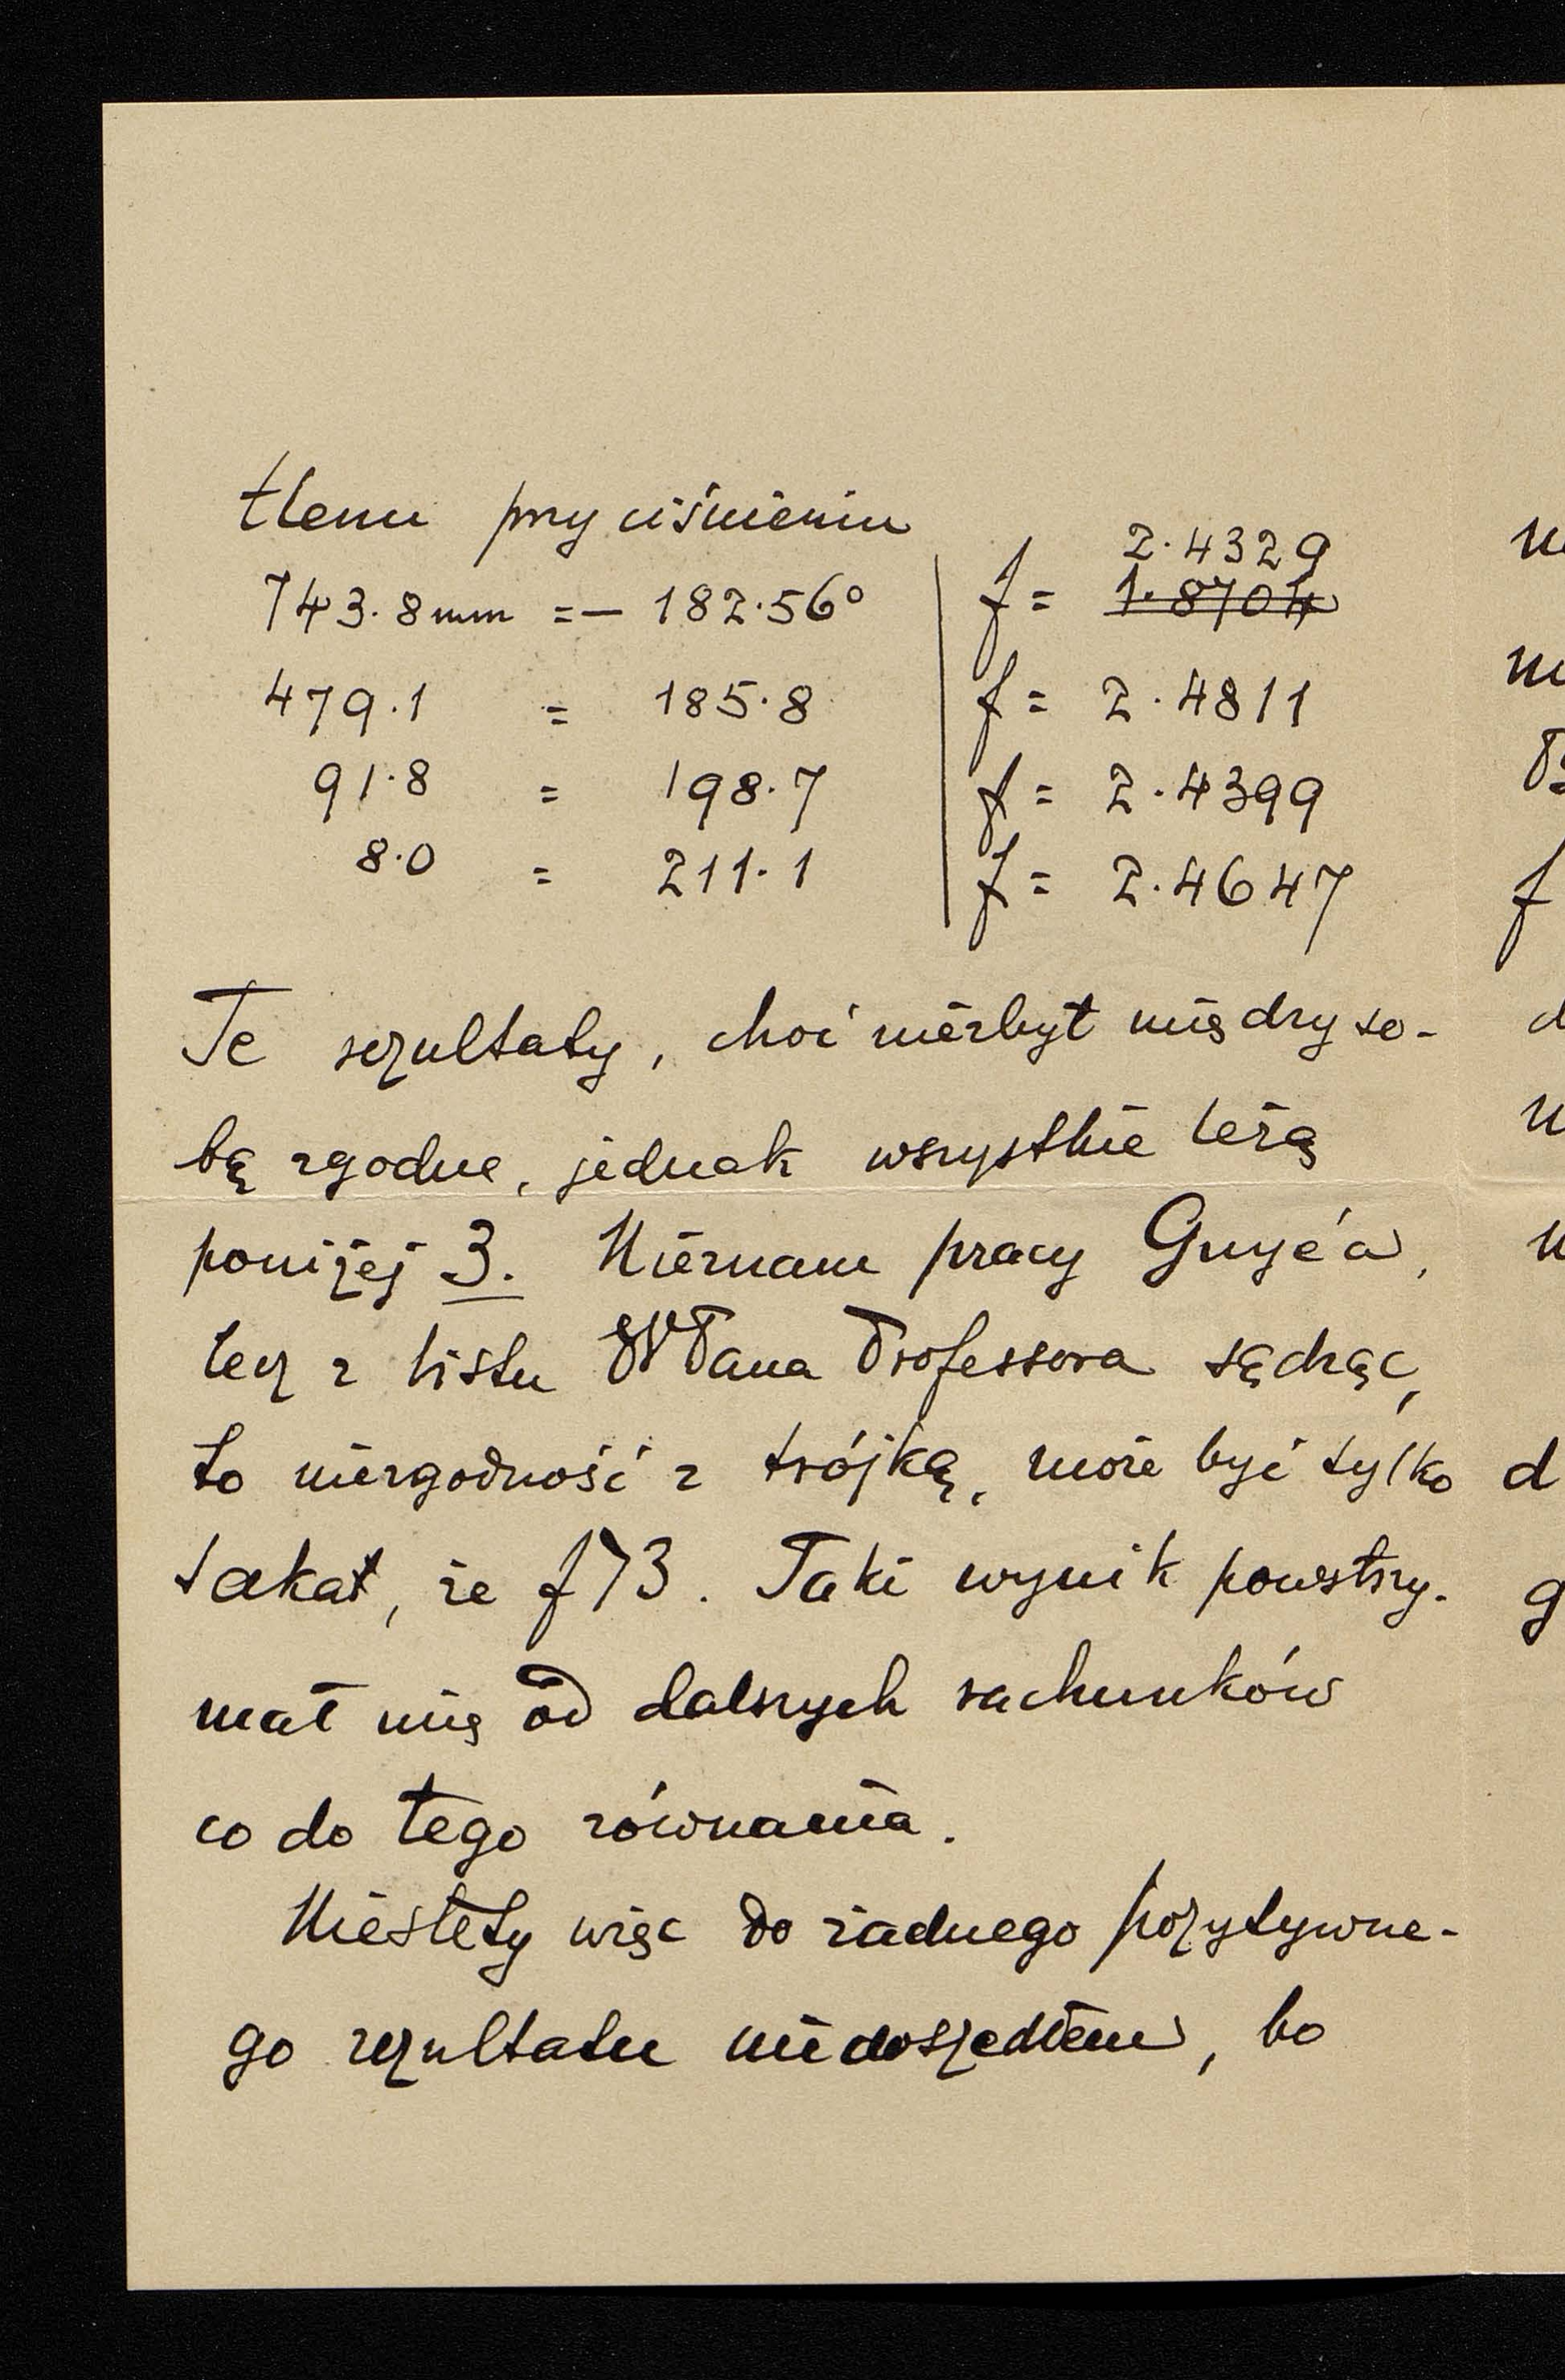 tlenu przy ciśnieniu
743.8mm = – 182.56° | f = 2.4329 1.8704
479.1 = 185.8 | f = 2.4811
91.8 = 198.7 | f = 2.4399
8.0 = 211.1 | f = 2.4647
Te rezultaty, choć niezbyt między so-
bą zgodne, jednak wszystkie leżą
poniżej 3. Nieznam pracy Guye'a,
lecz z listu WPana Professora sądząc,
to niezgodność z trójką, może być tylko
taka, że f>3. Taki wynik powstrzy-
mał mię od dalszych rachunków
co do tego równania.
Niestety więc do żadnego pozytywne-
go rezultatu nie doszedłem, bo
d
g
f